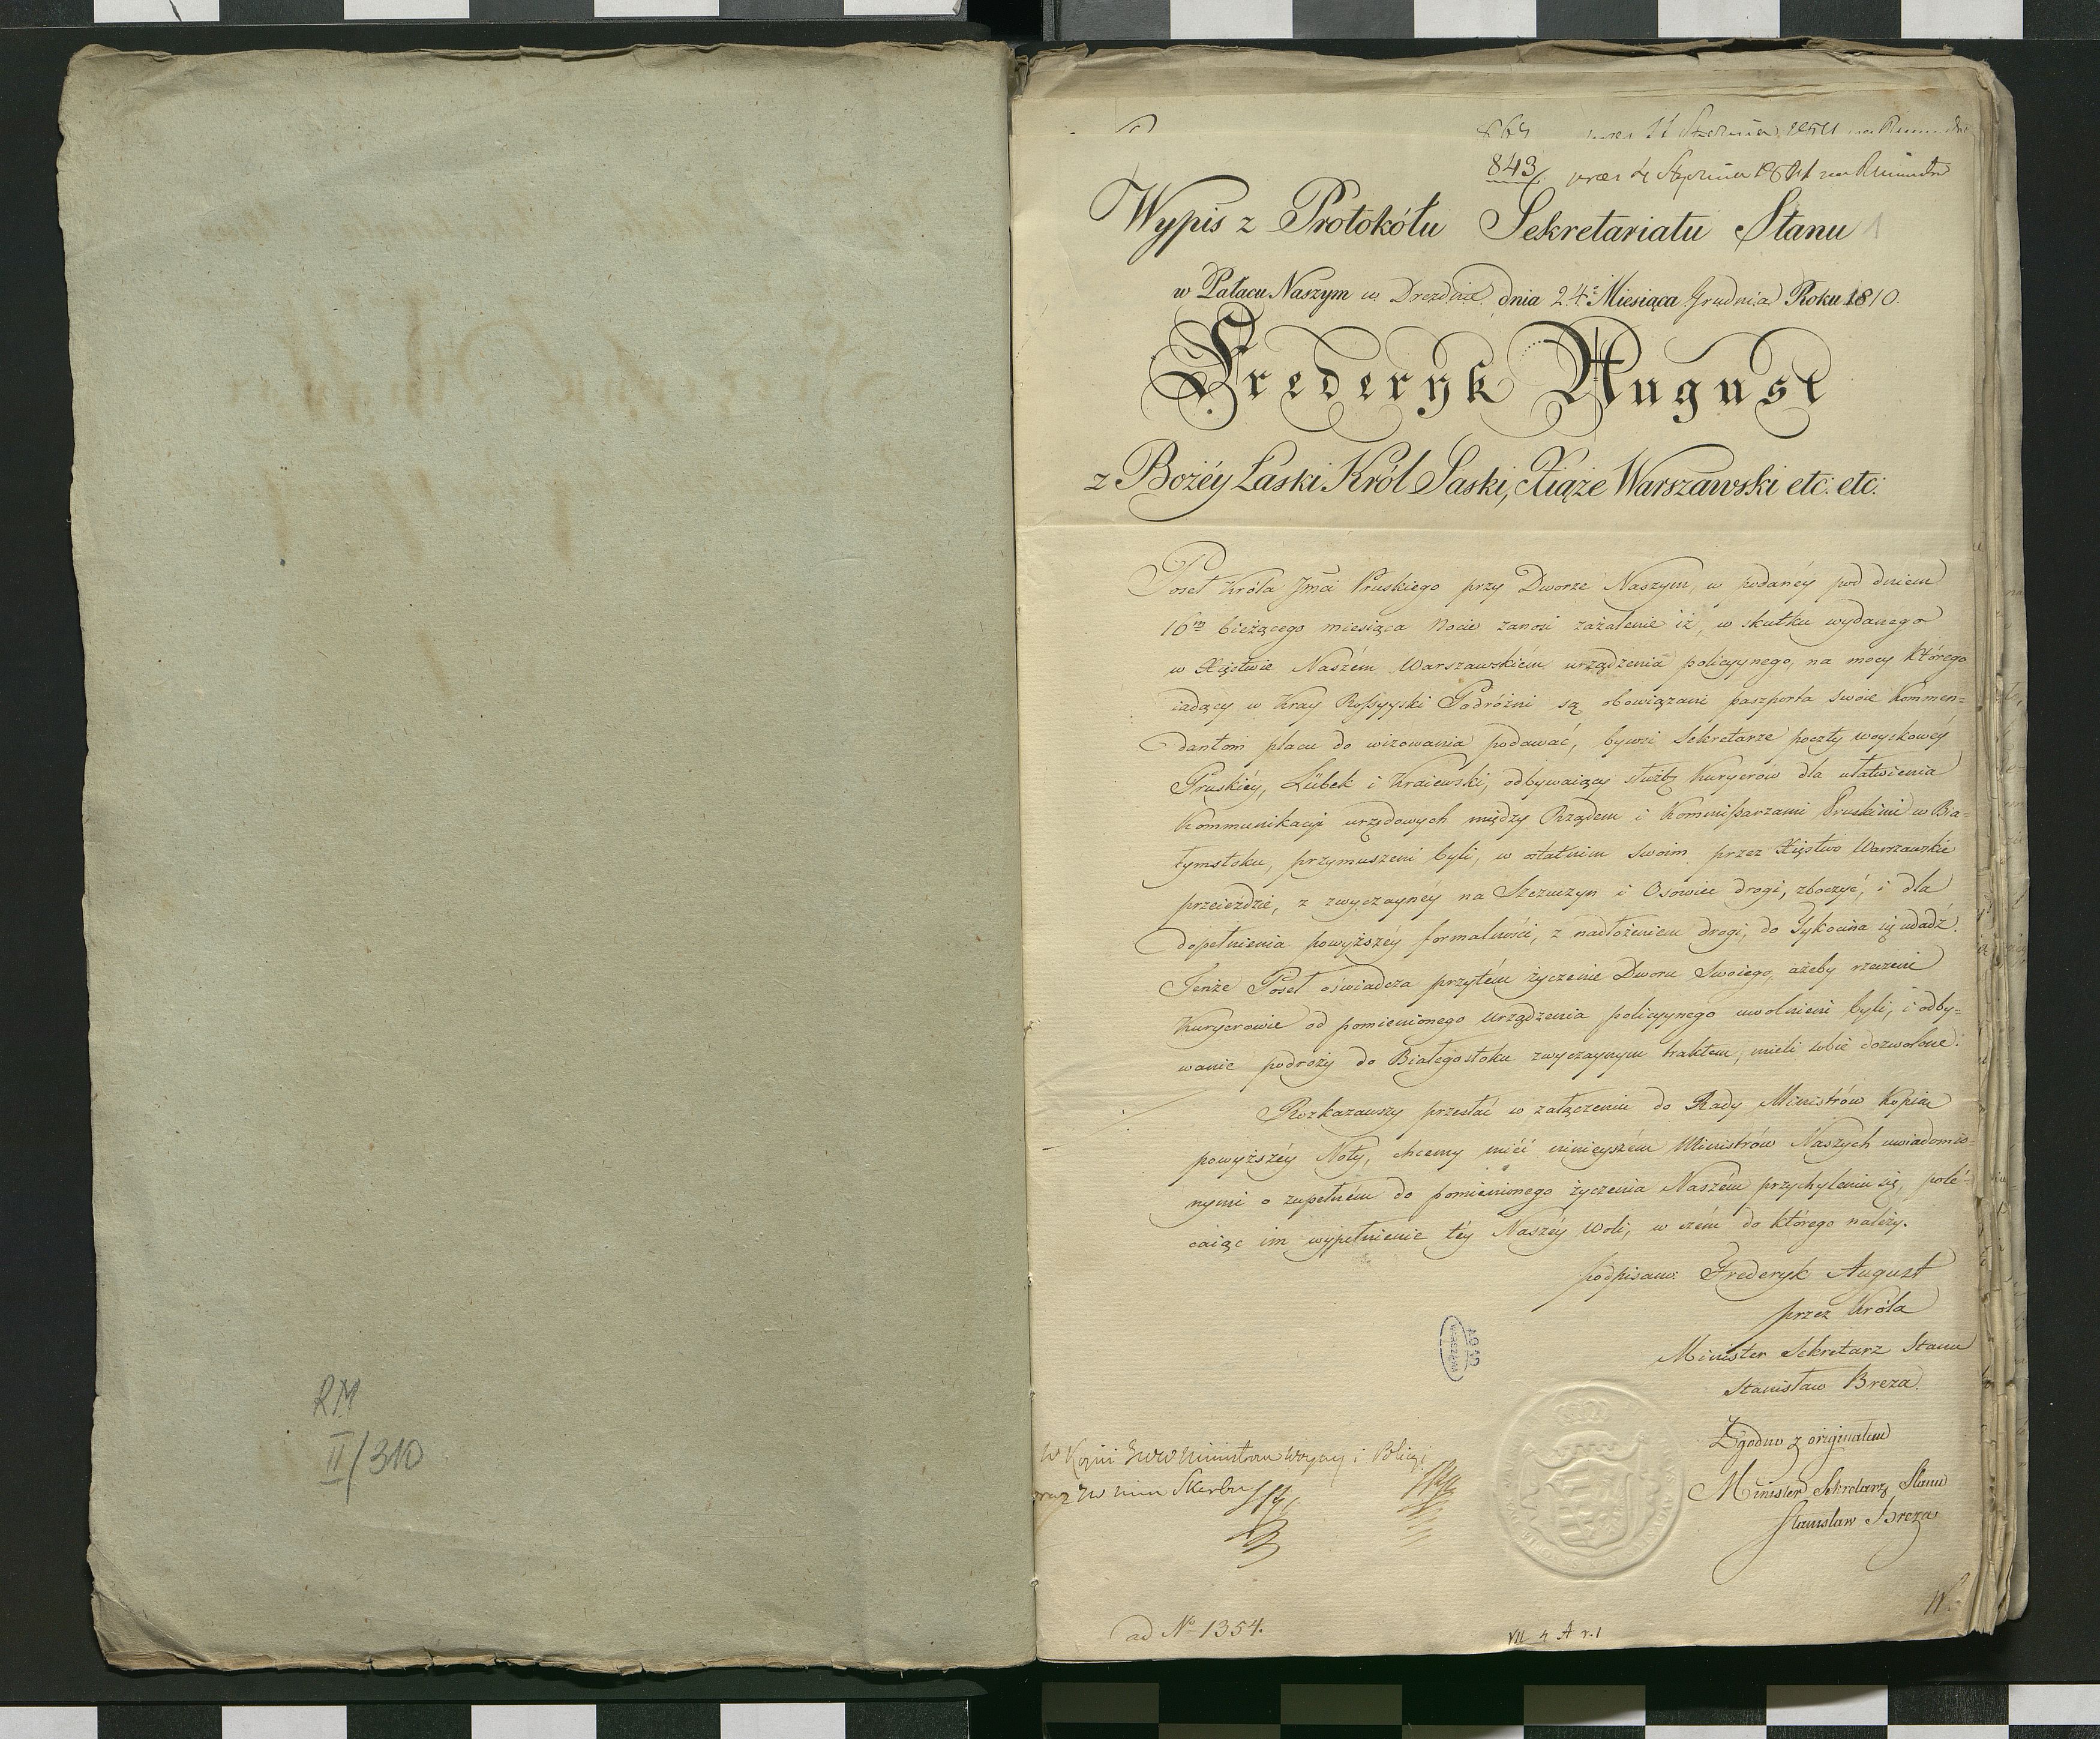 RM
II/310
843
Wypis z Protokółu Sekretariatu Stanu
1
w Pałacu Naszym w Dreźnie dnia 24. Miesiąca Grudnia Roku 1810.
Frederyk August
z Bożéy Łaski Król Saski, Xiąże Warszawski etc: etc:
Poseł Króla Jmci Pruskiego przy Dworze Naszym, w podanéy pod dniem
16m bieżącego miesiąca Nocie zanosi zażalenie iż, w skutku wydanego
w Xięstwie Naszém Warszawskiém urządzenia policyynego, na mocy którego
iadący w Kray Rossyyski Podróżni są obowiązani paszporta swoie Kommen-
dantom placu do wizowania podawać, bywsi Sekretarze poczty woyskowéy
Pruskiéy, Lübek i Kraiewski, odbywaiący służbę Kuryerów dla ułatwienia
Kommunikacyi urzędowych między Rządem i Kommissarzami Pruskimi w Bia-
łymstoku, przymuszeni byli, w ostatnim swoim przez Xięstwo Warszawskie
przeieździe, z zwyczaynéy na Szczuczyn i Osowiec drogi, zboczyć, i dla
dopełnienia powyższéy formalności, z nadłożeniem drogi, do Tykocina się udadź.
Tenże Poseł oświadcza przytém życzenie Dworu Swoiego, ażeby rzeczeni
Kuryerowie od pomienionego urządzenia policyynego uwolnieni byli, i odby-
wanie podróży do Białegostoku zwyczaynym traktem, mieli sobie dozwolone.
Rozkazawszy przesłać w załączeniu do Rady Ministrów Kopią
powyższéy Noty, chcemy mieć ninieyszém Ministrów Naszych uwiadomio-
nymi o zupełném do pomienionego życzenia Naszém przychyleniu się, polé-
caiąc im wypełnienie téy Naszéy Woli, w czém do którego należy.
podpisano: Frederyk August
przez Króla
Minister Sekretarz Stanu
Stanisław Breza.
AGAD
WARSZAWA
Zgodno z originałem
Minister Sekretarz Stanu
Stanisław Breza
W Kopii JWW Ministrom Woyny i Policyi
oraz JW Min Skarbu
ad No 1354.
VII 4 A r.1